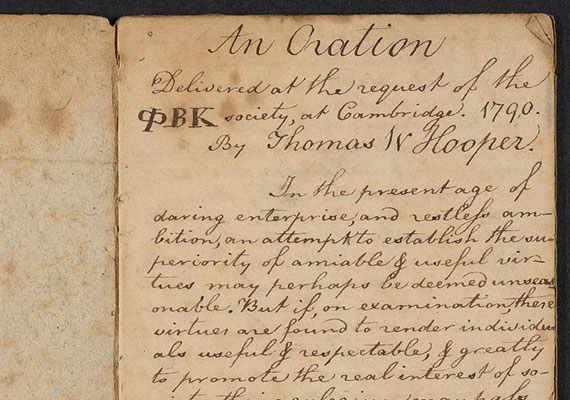 An Oration
Delivered at the request of the
ΦBK society, at Cambridge. 1790.
By Thomas W Hooper.
In the present age of
daring enterprise, and restleſs am-
bition, an attempt to establish the su-
periority of amiable & useful vir-
tues may perhaps be deemed unseas
onable. But if, on examination, these
virtues are found to render individu
als useful & respectable, & greatly
to promote the real interest of so-